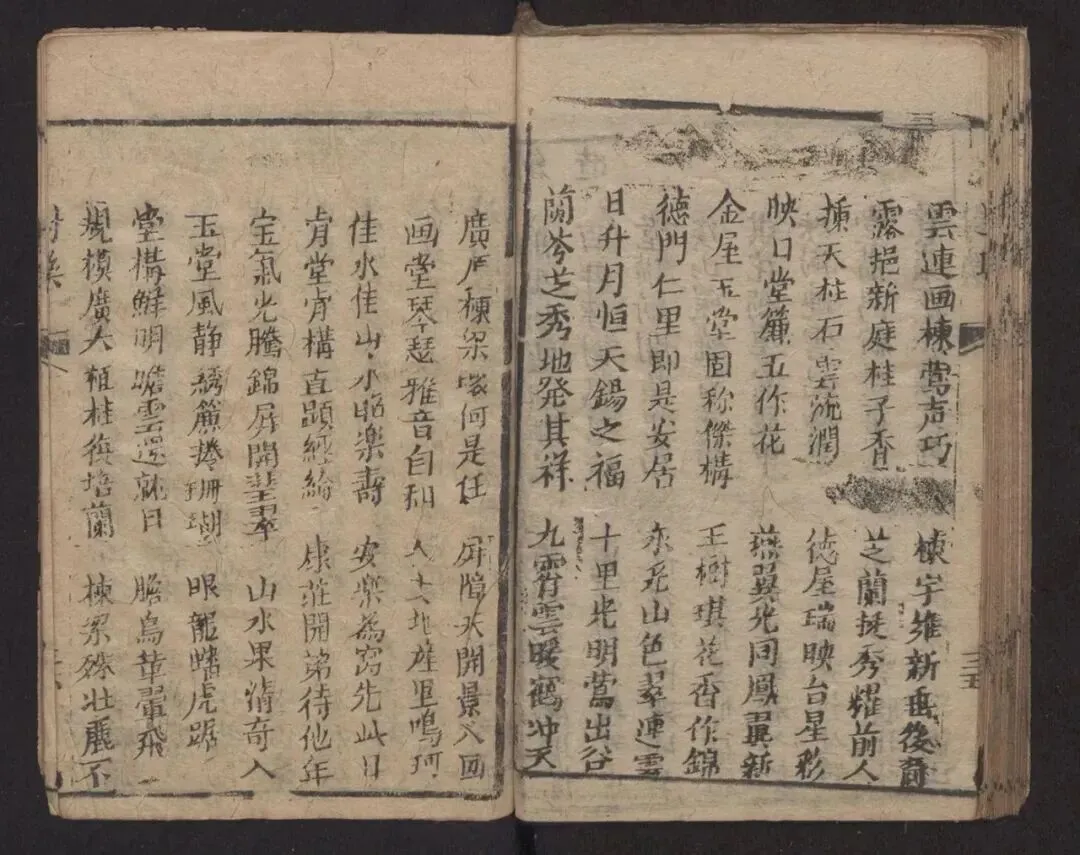 雲連画棟莺声巧
棟宇維新垂後裔
露挹新庭桂子香
芝蘭挺秀耀前人
天柱石雲流潤
德屋瑞映台星彩
映日堂簾五作花
燕翼光同鳳翼新
金屋玉堂固称傑構
玉樹琪花香作錦
德門仁里即是安居
山色翠連雲
日升月恒天錫之福
十里光明莺出谷
蘭岑芝秀地発其祥
九霄雲暖鶴冲天
棟梁何是任
屏障大開景入画
画堂琴瑟雅音自和
人士地産里鳴珂
佳水佳山山水昭樂壽
安樂為窩先此日
肯堂肯構直顕經綸
康莊開第待他年
宝氣光騰錦屏開翠
山水果清奇入
玉堂風静綉簾捲珊瑚
眼龍蟠虎踞
堂構鮮明瞻雲還就日
瞻烏革翬飛
規模廣大植柱復培蘭
棟梁壮麗不
三五